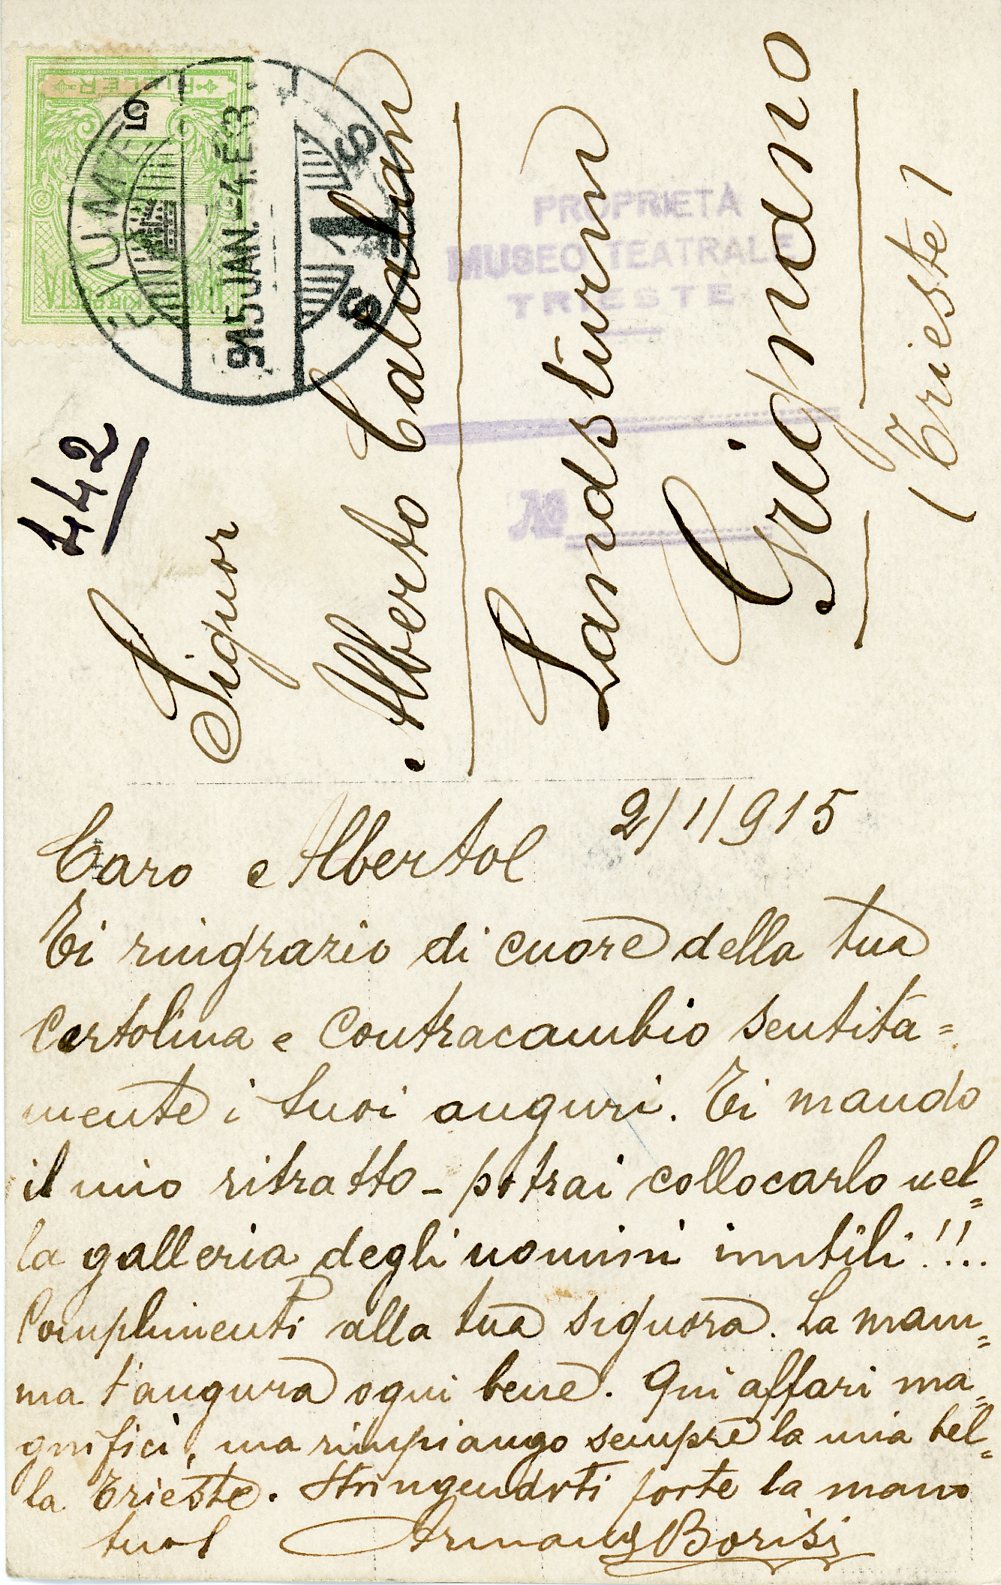 FILLÉR
5
FIUME
915 JAN. -4. É 8
442
Signor
Alberto
Landsturm
Grignano
(Trieste)
PROPRIETÀ
MUSEO TEATRALE
TRIESTE
No
2/1/915
Caro Alberto!
Ti ringrazio di cuore della tua
Cartolina e contracambio sentita=
mente i tuoi auguri. Ti mando
il mio ritratto - potrai collocarlo nel=
la galleria degli uomini inutili!!..
Complimenti alla tua signora. La mam=
ma t'augura ogni bene. Qui affari ma=
gnifici, ma rimpiango sempre la mia bel=
la Trieste. Stringendoti forte la mano
tuo Borisi